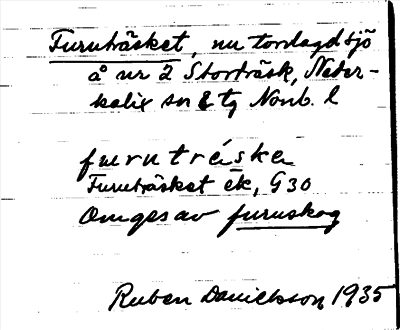 Furuträsket, nu torrlagd sjö
å nr 2 Storträsk, Neder-
kalix sn & tg Nonb. l
furuträska
Furuträsket ek, G30
Omges av furuskog
Ruben Danielsson 1935